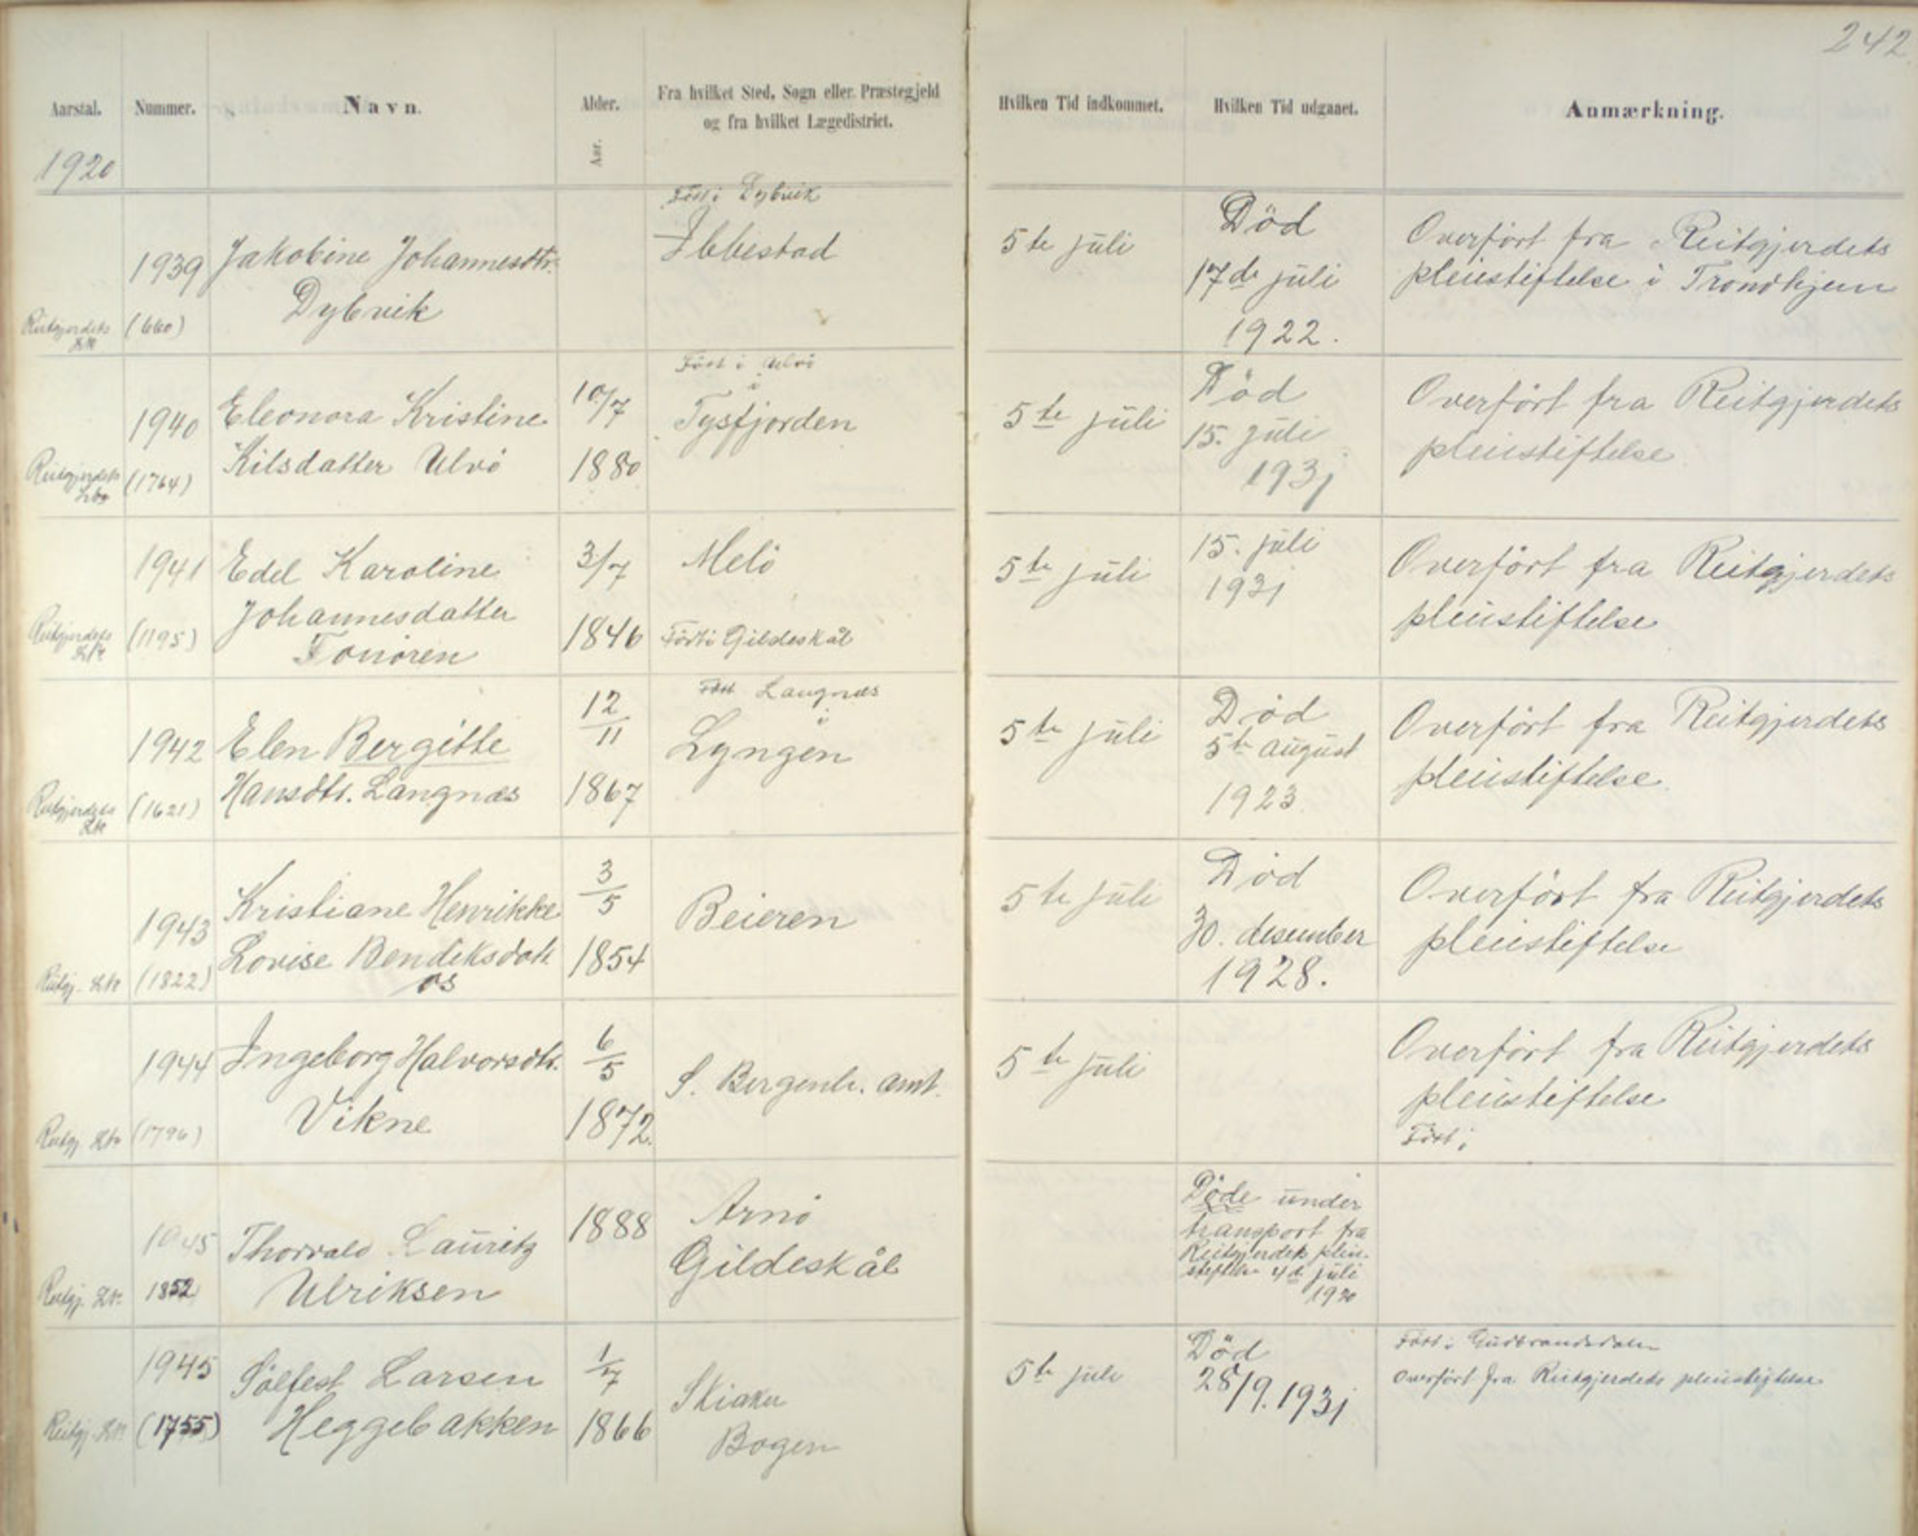 242
Aarstal.
Nummer.
Navn.
Alder.
Aar.
Fra hvilket Sted, Sogn eller Præstegjeld
og fra hvilket Lægedistrict.
Hvilken Tid indkommet.
Hvilken Tid udgaaet.
Anmærkning.
1920
1939
Jakobine Johannesdtr.
Dybvik
Reitgjerdets
(660)
Født i Dybvik
Ibbestad
5te juli
Död
17de juli
1922.
Overført fra Reitgjerdets
pleiestiftelse i Trondhjem
1940
Eleonora Kristine
Kilsdatter Ulvö
Reitgjerdets
(1764)
10/7
1880
Født i Ulvö
i
Tysfjorden
5te juli
Död
15. juli
1931
Overført fra Reitgjerdets
pleiestiftelse
1941
Edel Karoline
Johannesdatter
Reitgjerdets
(1195)
3/7
1846
Melö
Født i Gildeskål
5te juli
15. juli
1931
Overført fra Reitgjerdets
pleiestiftelse
1942
Elen Bergitte
Hansdtr. Langnæs
Reitgjerdets
(1621)
12/11
1867
Født Langnæs
i
Lyngen
5te juli
Död
5te august
1923.
Overført fra Reitgjerdets
pleiestiftelse
1943
Kristiane Henrikke
Lovise Bendiksdatt
os
Reitgj.
(1822)
3/5
1854
Beieren
5te juli
Död
30. desember
1928.
Overført fra Reitgjerdets
pleiestiftelse
1944
Ingeborg Halvorsdtr.
Vikne
Reitgj.
(1796)
6/5
1872.
S. Bergenh. amt.
5te juli
Overført fra Reitgjerdets
pleiestiftelse
Født i
1945
Thorvald Lauritz
Ulriksen
Reitgj.
1852
1888
Arnö
Gildeskål
Döde under
transport fra
Reitgjerdets pleie-
stiftelse 4de juli
1920
1945
Sölfest Larsen
Heggebakken
Reitgj.
(1755)
1/7
1866
Skiaker
Bogen
5te juli
Död
28/9.1931
Født i Gudbrandsdalen
Overført fra Reitgjerdets pleiestiftelse